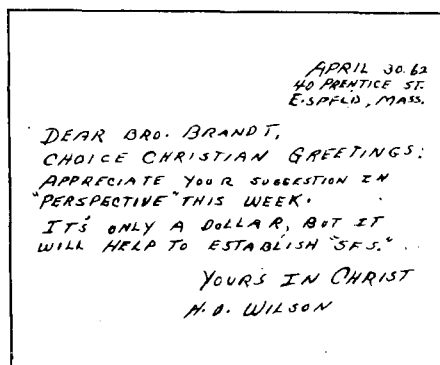 APRIL 30.62
40 PRENTICE ST.
E. SPFLD, MASS.
DEAR BRO. BRANDT,
CHOICE CHRISTIAN GREETINGS:
APPRECIATE YOUR SUGGESTION IN
"PERSPECTIVE" THIS WEEK.
IT'S ONLY A DOLLAR, BUT IT
WILL HELP TO ESTABLISH "SFS."
YOURS IN CHRIST
H.D. WILSON